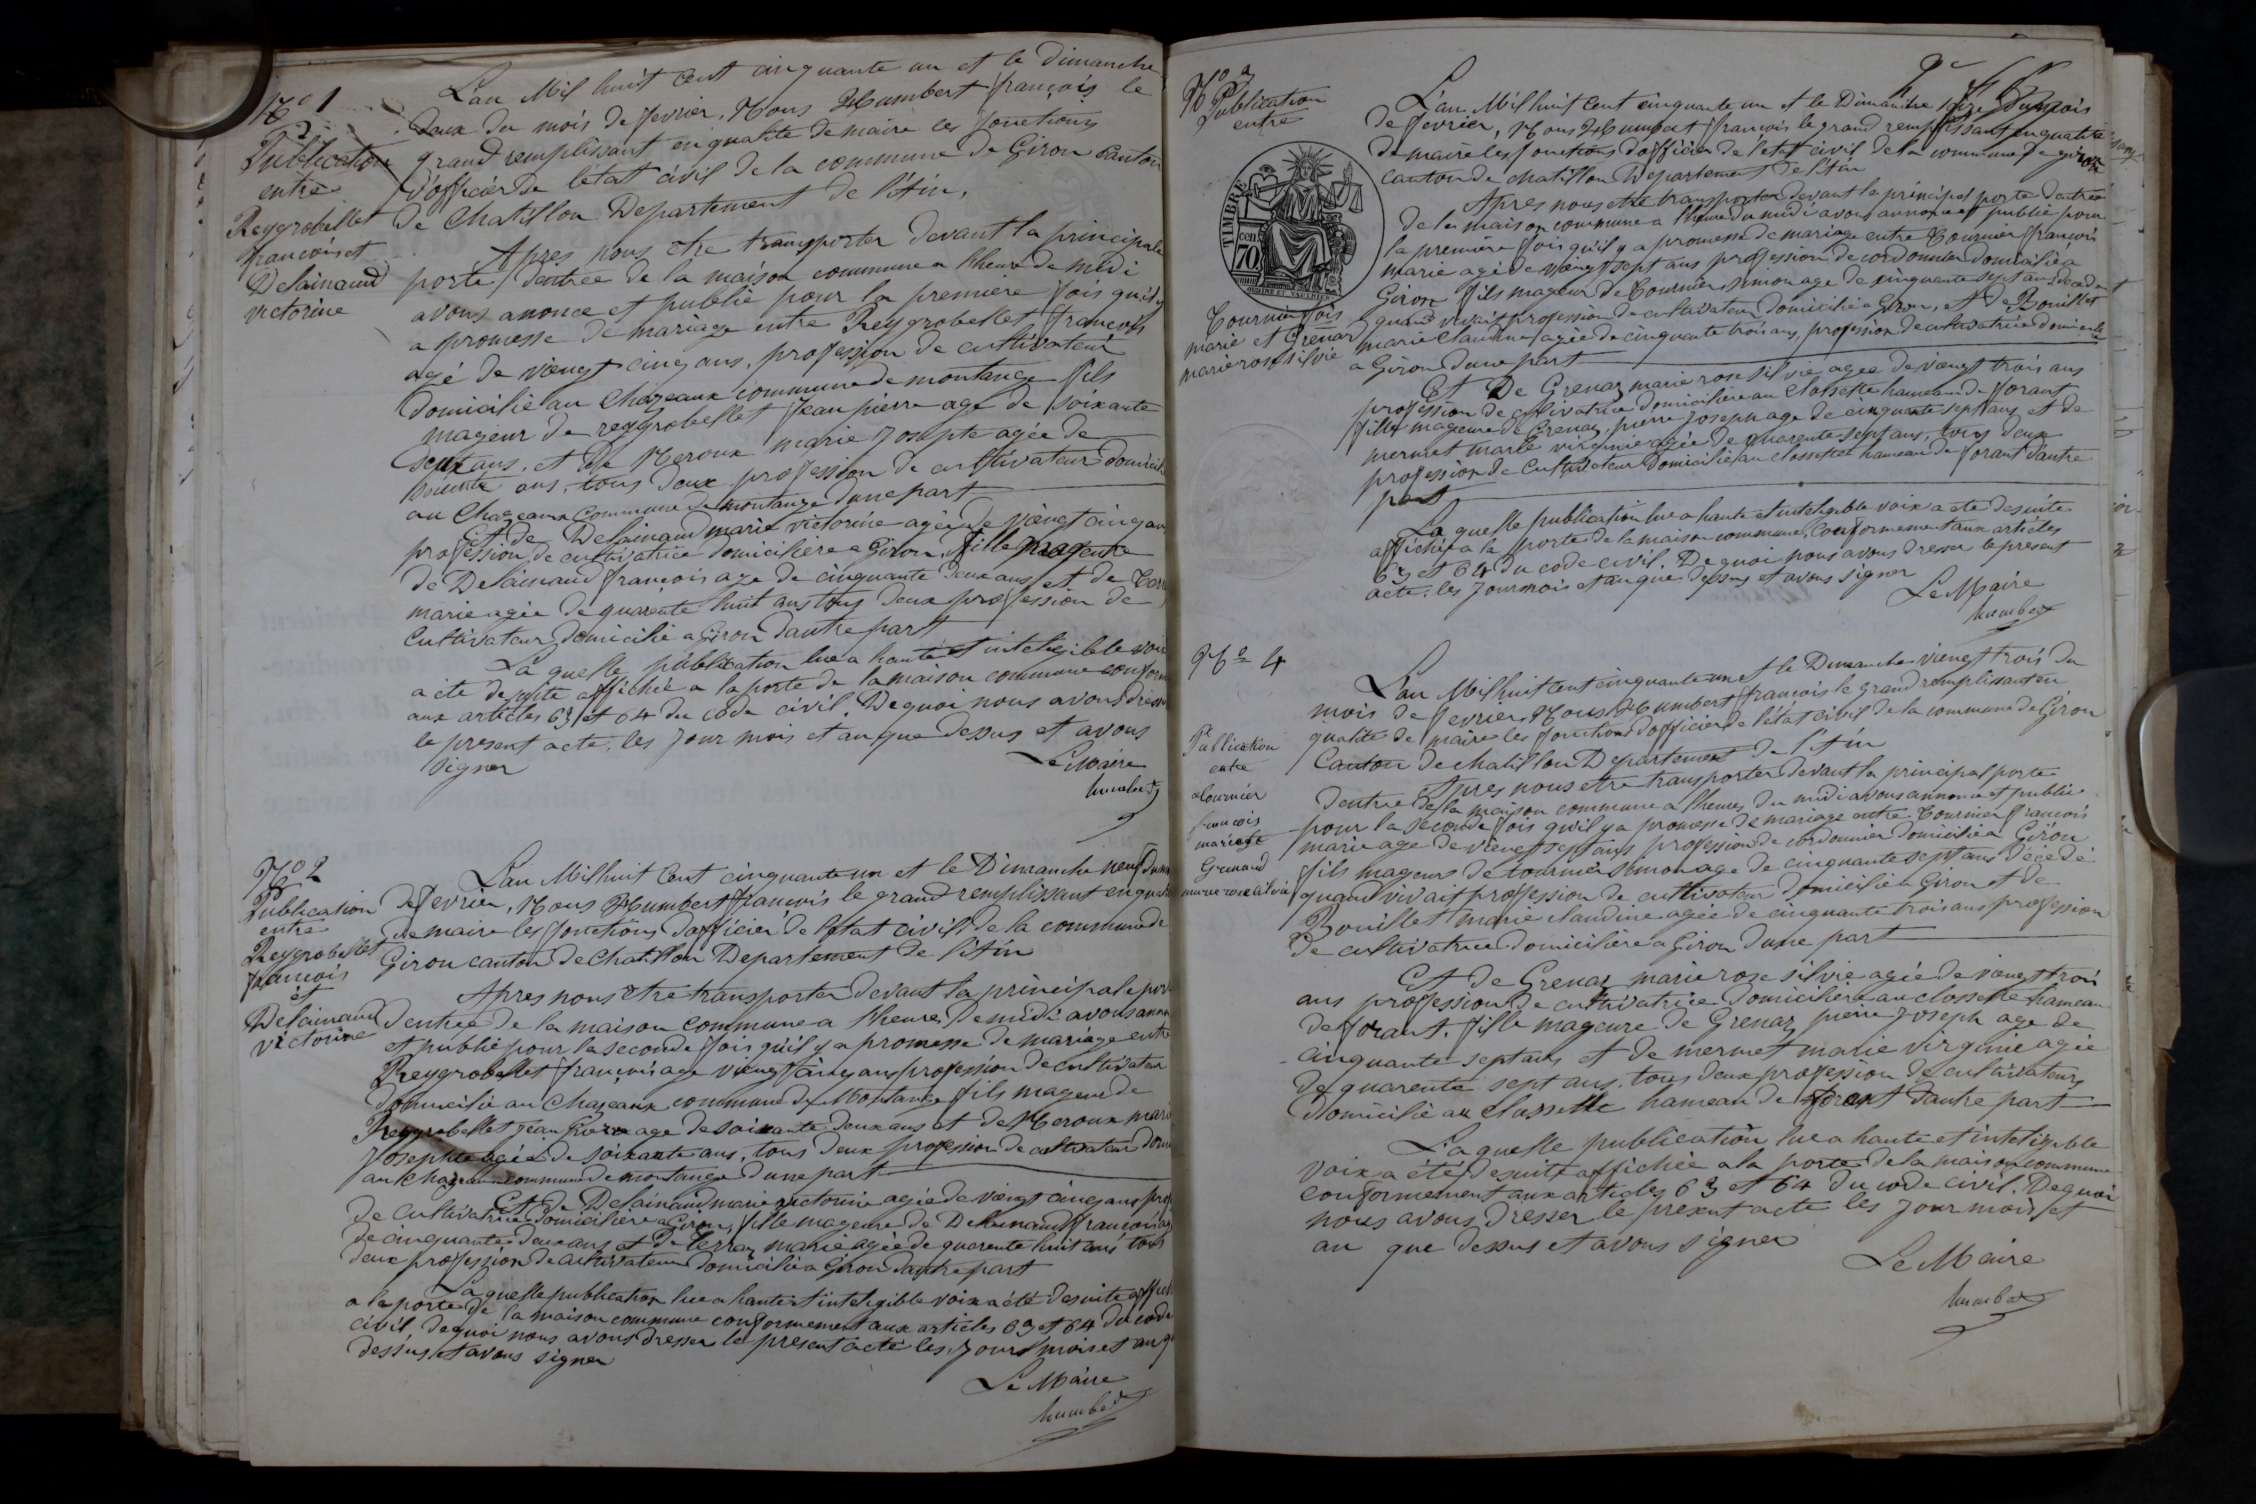 No 1
Publication
entre
Reygrobellet
francois et
Delainaud
victorine
L'an Mil huit Cent cinquante un et le Dimanche
deux du mois de fevrier, Nous Humbert françois le
grand remplissant en qualité de maire les fonctions
d'officier de letat civil de la commune de Giron Canton
de Chatillon Departement de l'Ain,
Apres nous etre transporter devant la principale
porte dentrée de la maison commune a lheure de midi
avons anonce et publié pour la premiere fois quil y
a promesse de mariage entre Reygrobellet francois
agé de viengt cinq ans, profession de cultivateur
domicilié au Chazeaux commune de montange fils
mageur de reygrobellet Jean pierre agé de soixante
deux ans, et de Neroux marie Josepte agée de
soixante ans, tous deux profession de cultivateur domicilié
au Chazeaux Commune de montange dune part
Et de Delainaud marie victorine agée de viengt cinq ans
profession de cultivatrice domicilière a Giron, fille mageure
de Delainaud francois age de cinquante deux ans et de
marie agée de quarente huit ans tous deux profession de
Cultivateur domicilié a Giron dautre part
La quelle publication lue a haute et inteligible voix
a été de suite affichée a la porte de la maison commune conform
aux articles 63 et 64 du code civil. De quoi nous avons dresser
le present acte, les jour mois et an que dessus et avons
signer
Le Maire
humbert
No 2
Publication
entre
Reygrobellet
francois
et
Delainaud
victorine
L'an Mil huit Cent cinquante un et le Dimanche neuf du mois
de fevrier, Nous Humbert francois le grand remplissant en qualité
de maire les fonctions dofficier de letat civil de la commune de
Giron canton de Chatillon Departement de l'Ain
Apres nous etre transporter devant la principale porte
dentrée de la maison commune a lheure de midi avons annon
et publié pour la seconde fois quil y a promesse de mariage entre
Reygrobellet francois age viengt cinq ans profession de cultivateur
domicilié au Chazeaux commune de Montange fils mageur de
Reygrobellet Jean pierre age de soixante deux ans et de Neroux marie
Josephte agée de soixante ans, tous deux profession de cultivateur domi
au Chazeaux commune de montange dune part
Et de Delainaud marie victorine agée de viengt cinq ans prof
de cultivatrice domicilière a Giron, fille mageure de Delainaud francois ag
de cinquante deux ans et de Terraz marie agée de quarente huit ans tous
deux profession de cultivateur domicilié a Giron dautre part
La quelle publication lue a haute et inteligible voix a été de suite affich
a la porte de la maison commune conformement aux articles 63 et 64 du code
civil, de quoi nous avons dresser le present acte les jour mois et an q
dessus et avons signer
Le Maire
humbert
No 3
Publication
entre
TIMBRE
70
Tournier fois
marie et Grenar
marie rose silvie
L'an Mil huit Cent cinquante un et le Dimanche
de fevrier, Nous Humbert francois le grand remplissant en qualité
de maire les fonctions dofficier de letat civil de la commune de giron
canton de chatillon Departement de l'Ain
Apres nous etre transporter devant la principal porte dentrée
de la maison commune a lheure du midi avons annonce et publié pour
la premiere fois quil y a promesse de mariage entre Tournier francois
marie agé de viengt sept ans profession de cordonnier domicilié a
Giron fils mageur de Tournier simon age de cinquante sept ans decedé
quand vivait profession de cultivateur domicilié a Giron, et de Bouillet
marie Claudine agée de cinquante trois ans, profession de cultivatrice domicilié
a Giron dune part
Et De Grenaz marie rose silvie agée de viengt trois ans
profession de cultivatrice domicilière au Clossette hameau de forant
fille mageure de Grenaz pierre Joseph age de cinquante sept ans et de
mermet marie virginie agée de quarente sept ans, tous deux
profession de Cultivateur domicilié au Clossettes hameau de forant dautre
part
La quelle publication lue a haute et inteligible voix a été de suite
affichée a la porte de la maison commune, Conformement aux articles
63 et 64 du code civil. De quoi nous avons dresser le present
acte, les jour mois et an que dessus et avons signer
Le Maire
humbert
No 4
Publication
entre
tournier
francois
marie et
Grenaud
marie rose silvie
L'an Mil huit cent cinquante un et le Dimanche viengt trois du
mois de fevrier, Nous Humbert francois le grand remplissant en
qualité de maire les fonctions dofficier de l'état civil de la commune de Giron
Canton de chatillon Departement de l'Ain
Apres nous etre transporter devant la principal porte
dentrée de la maison commune a lheures du midi avons annoncé et publié
pour la seconde fois quil y a promesse de mariage entre Tournier francois
marie age de viengt sept ans profession de cordonnier domicilié a Giron
fils mageurs de tournier simon age de cinquante sept ans décedé
quand vivait profession de cultivateur domicilié a Giron et de
Bouillet marie claudine agée de cinquante trois ans profession
de cultivatrice domicilière a Giron dune part
Et de Grenaz marie rose silvie agée de viengt trois
ans profession de cultivatrice domicilière au clossette hameau
de forant. fille mageure de Grenaz pierre Joseph age de
cinquante sept ans et de mermet marie virginie agée
de quarente sept ans, tous deux profession de cultivateurs
domicilié au Clossette hameau de forant dautre part
La quelle publication lue a haute et inteligible
voix a été de suite affichée a la porte de la maison commune
conformement aux articles 63 et 64 du code civil. De quoi
nous avons dresser le present acte les jour mois et
an que dessus et avons signer
Le Maire
humbert